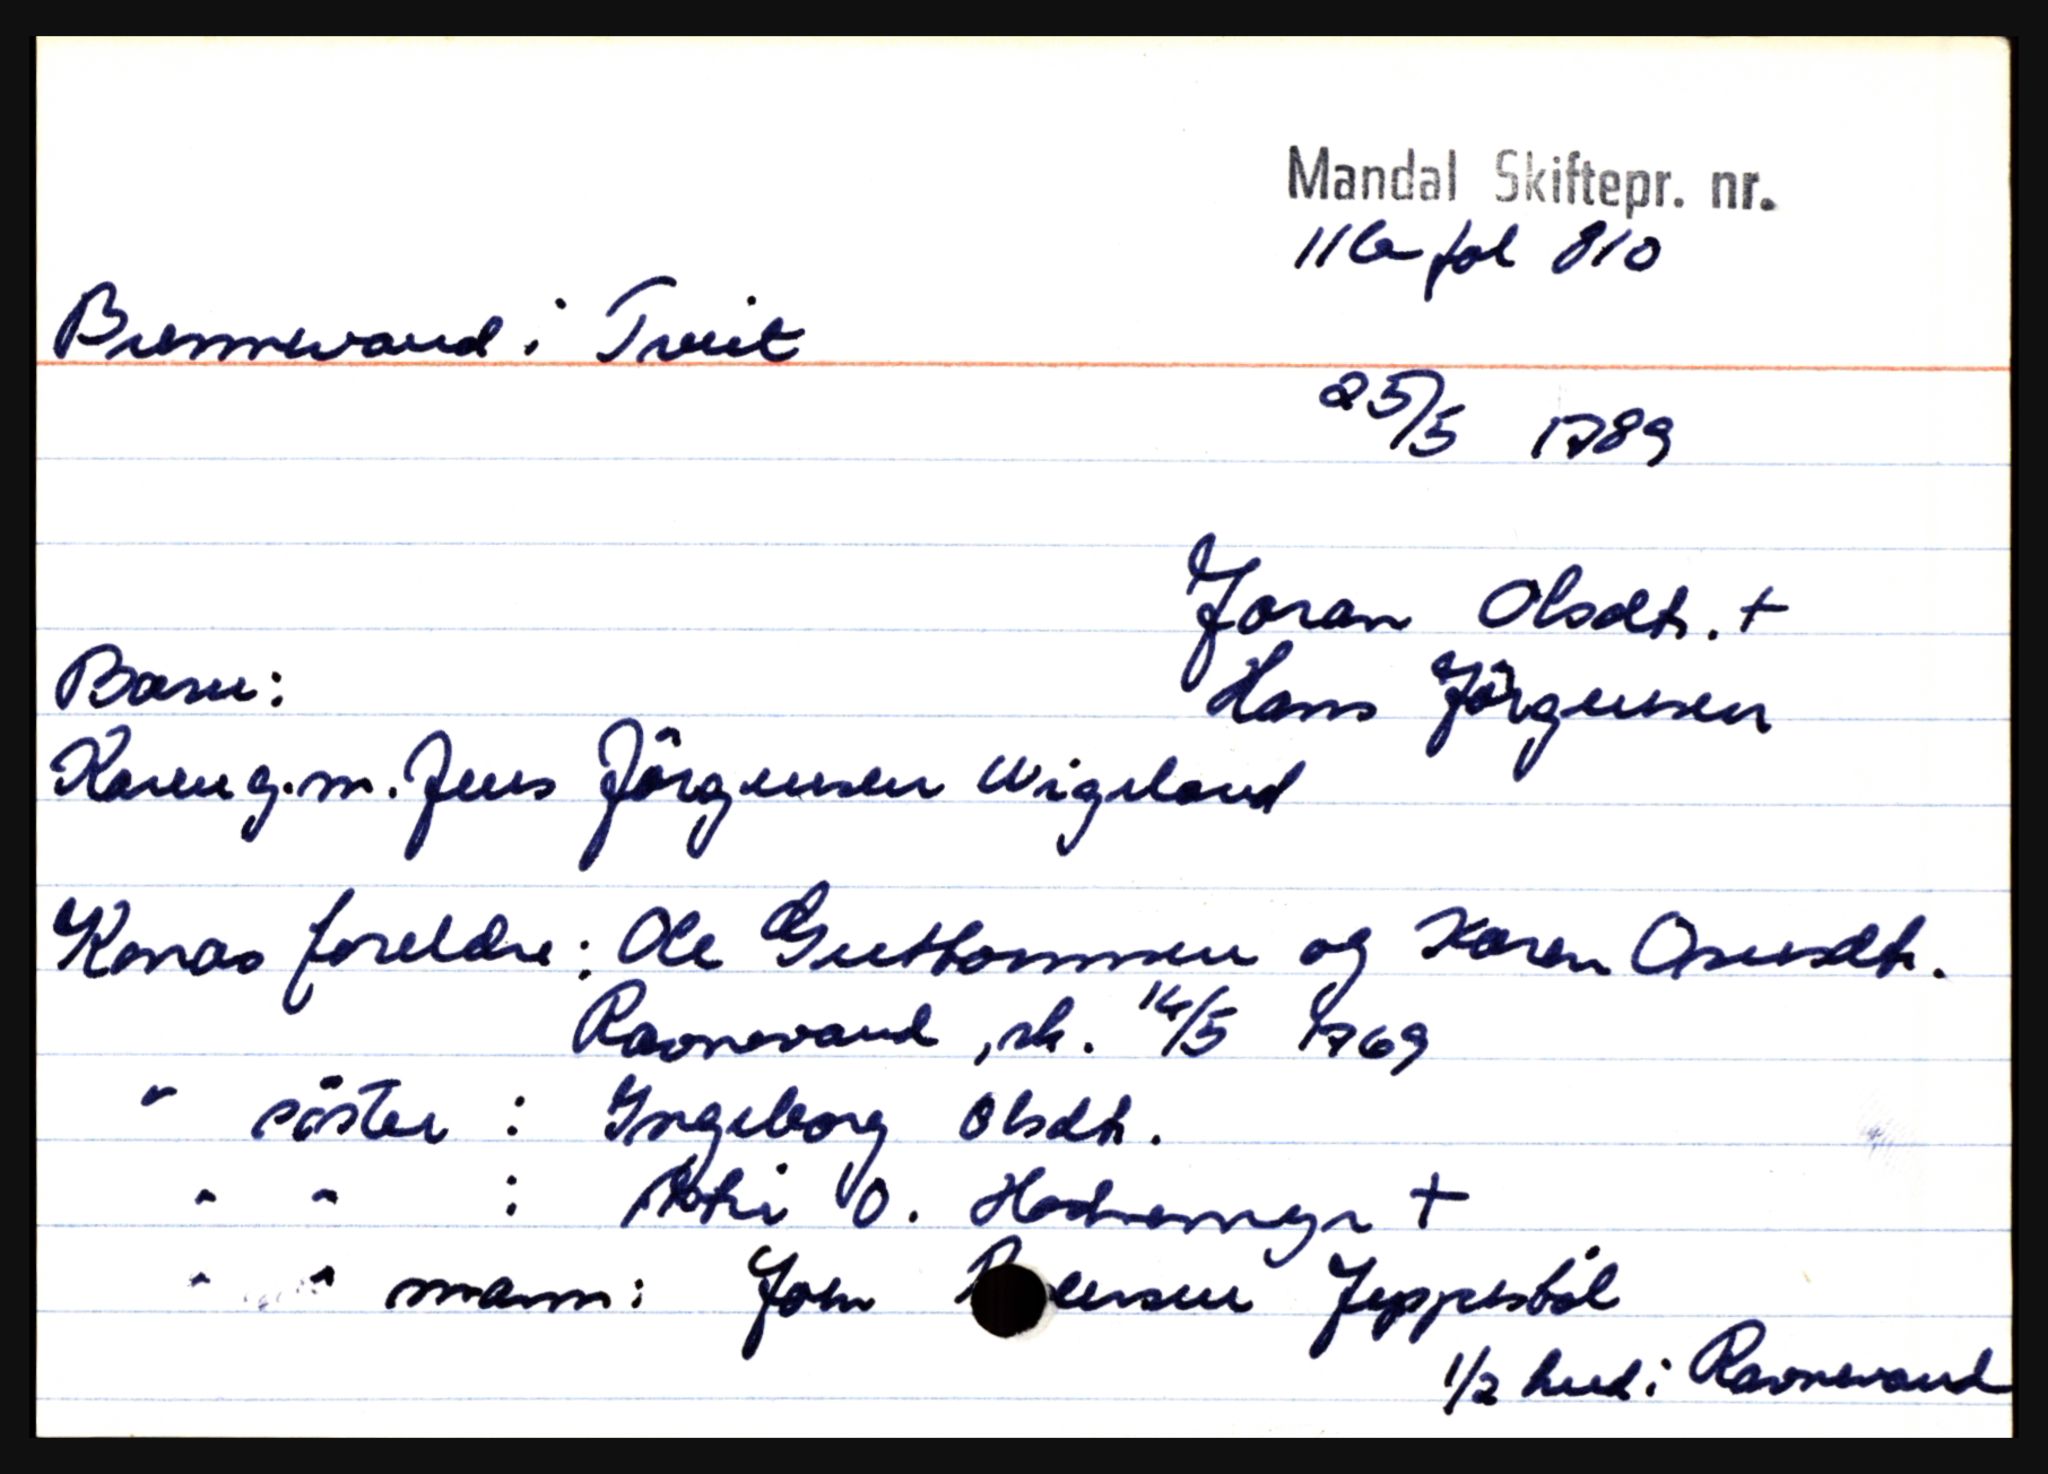 Mandal Skiftepr. nr.
11b fol 810
Brennevand i Tveit
25/5 1789
Joran Olsdtr. +
Barn:
Hans Jörgensen
Karen g.m. Jens Jörgensen Wigeland
Konas foreldre: Ole Guttormsen og Karen Osmsdtr.
Ravnevand, sk. 16/5 1769
" söster : Ingeborg Olsdtr.
" " : O. Hodnemyr +
" " mann: John Jeppestöl
1/2 hud i Ravnevand